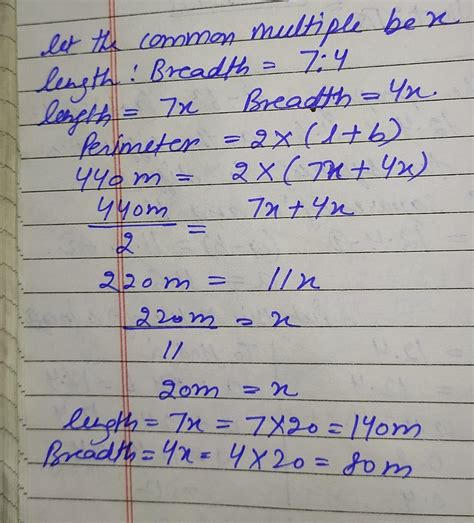 let the common multiple be x
length : Breadth = 7:4
length = 7x Breadth = 4x.
Perimeter = 2×(l+b)
440m = 2×(7x+4x)
440m/2 = 7x+4x
220m = 11x
220m/11 = x
20m = x
length = 7x = 7×20 = 140m
Breadth = 4x = 4×20 = 80m